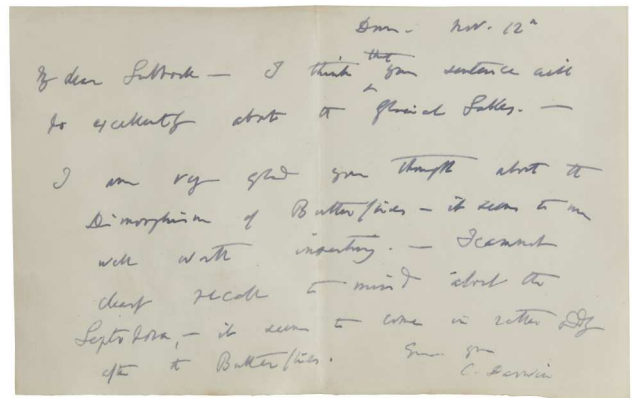 Down. Nov. 12th
My dear Lubbock — I think the your sentence will
do excellently about the glacial Lakes. —
I am very glad you thought about the
Dimorphism of Butterflies — it seems to me
well worth inserting. — I cannot
clearly recall to mind about the
Leptodora, — it seems to come in rather
after the Butterflies.
Ever yours
C. Darwin